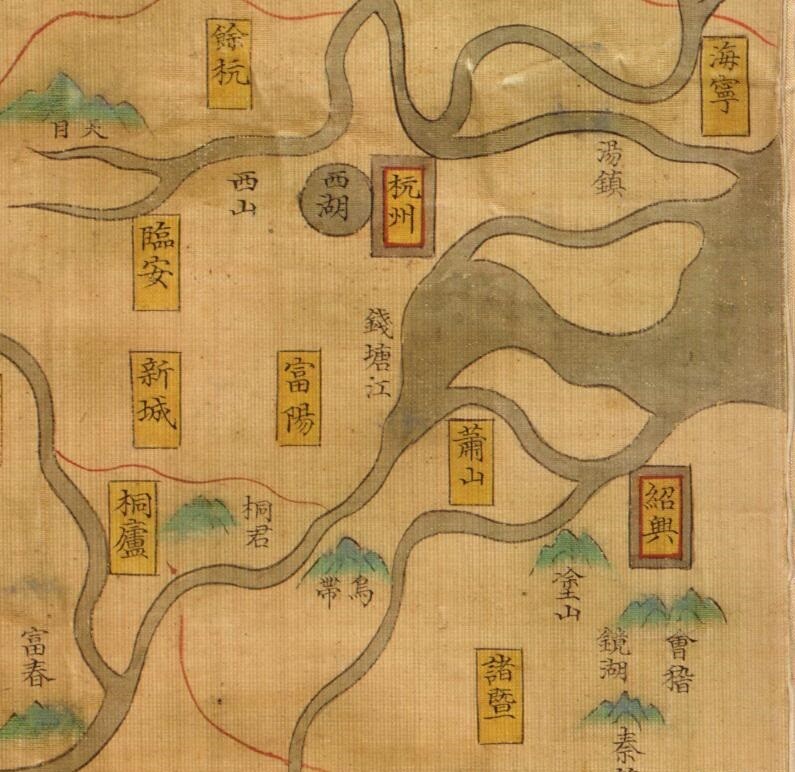 餘杭
海寧
天目
湯鎮
西山
西湖
杭州
臨安
錢塘江
新城
富陽
蕭山
桐廬
桐君
紹興
烏帶
塗山
富春
鏡湖
會稽
諸暨
秦